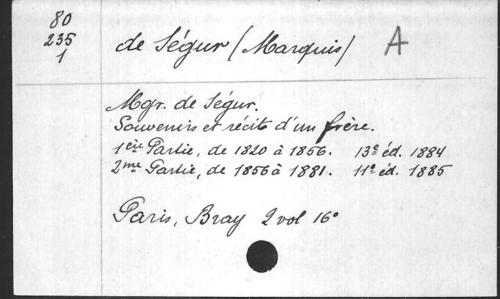 80
235
1
de Ségur (Marquis) A
Mgr. de Ségur.
Souvenirs et récits d'un frère.
1ère Partie, de 1820 à 1856. 13e éd. 1884
2me Partie, de 1856 à 1881. 11e éd. 1885
Paris, Bray 2 vol 16°